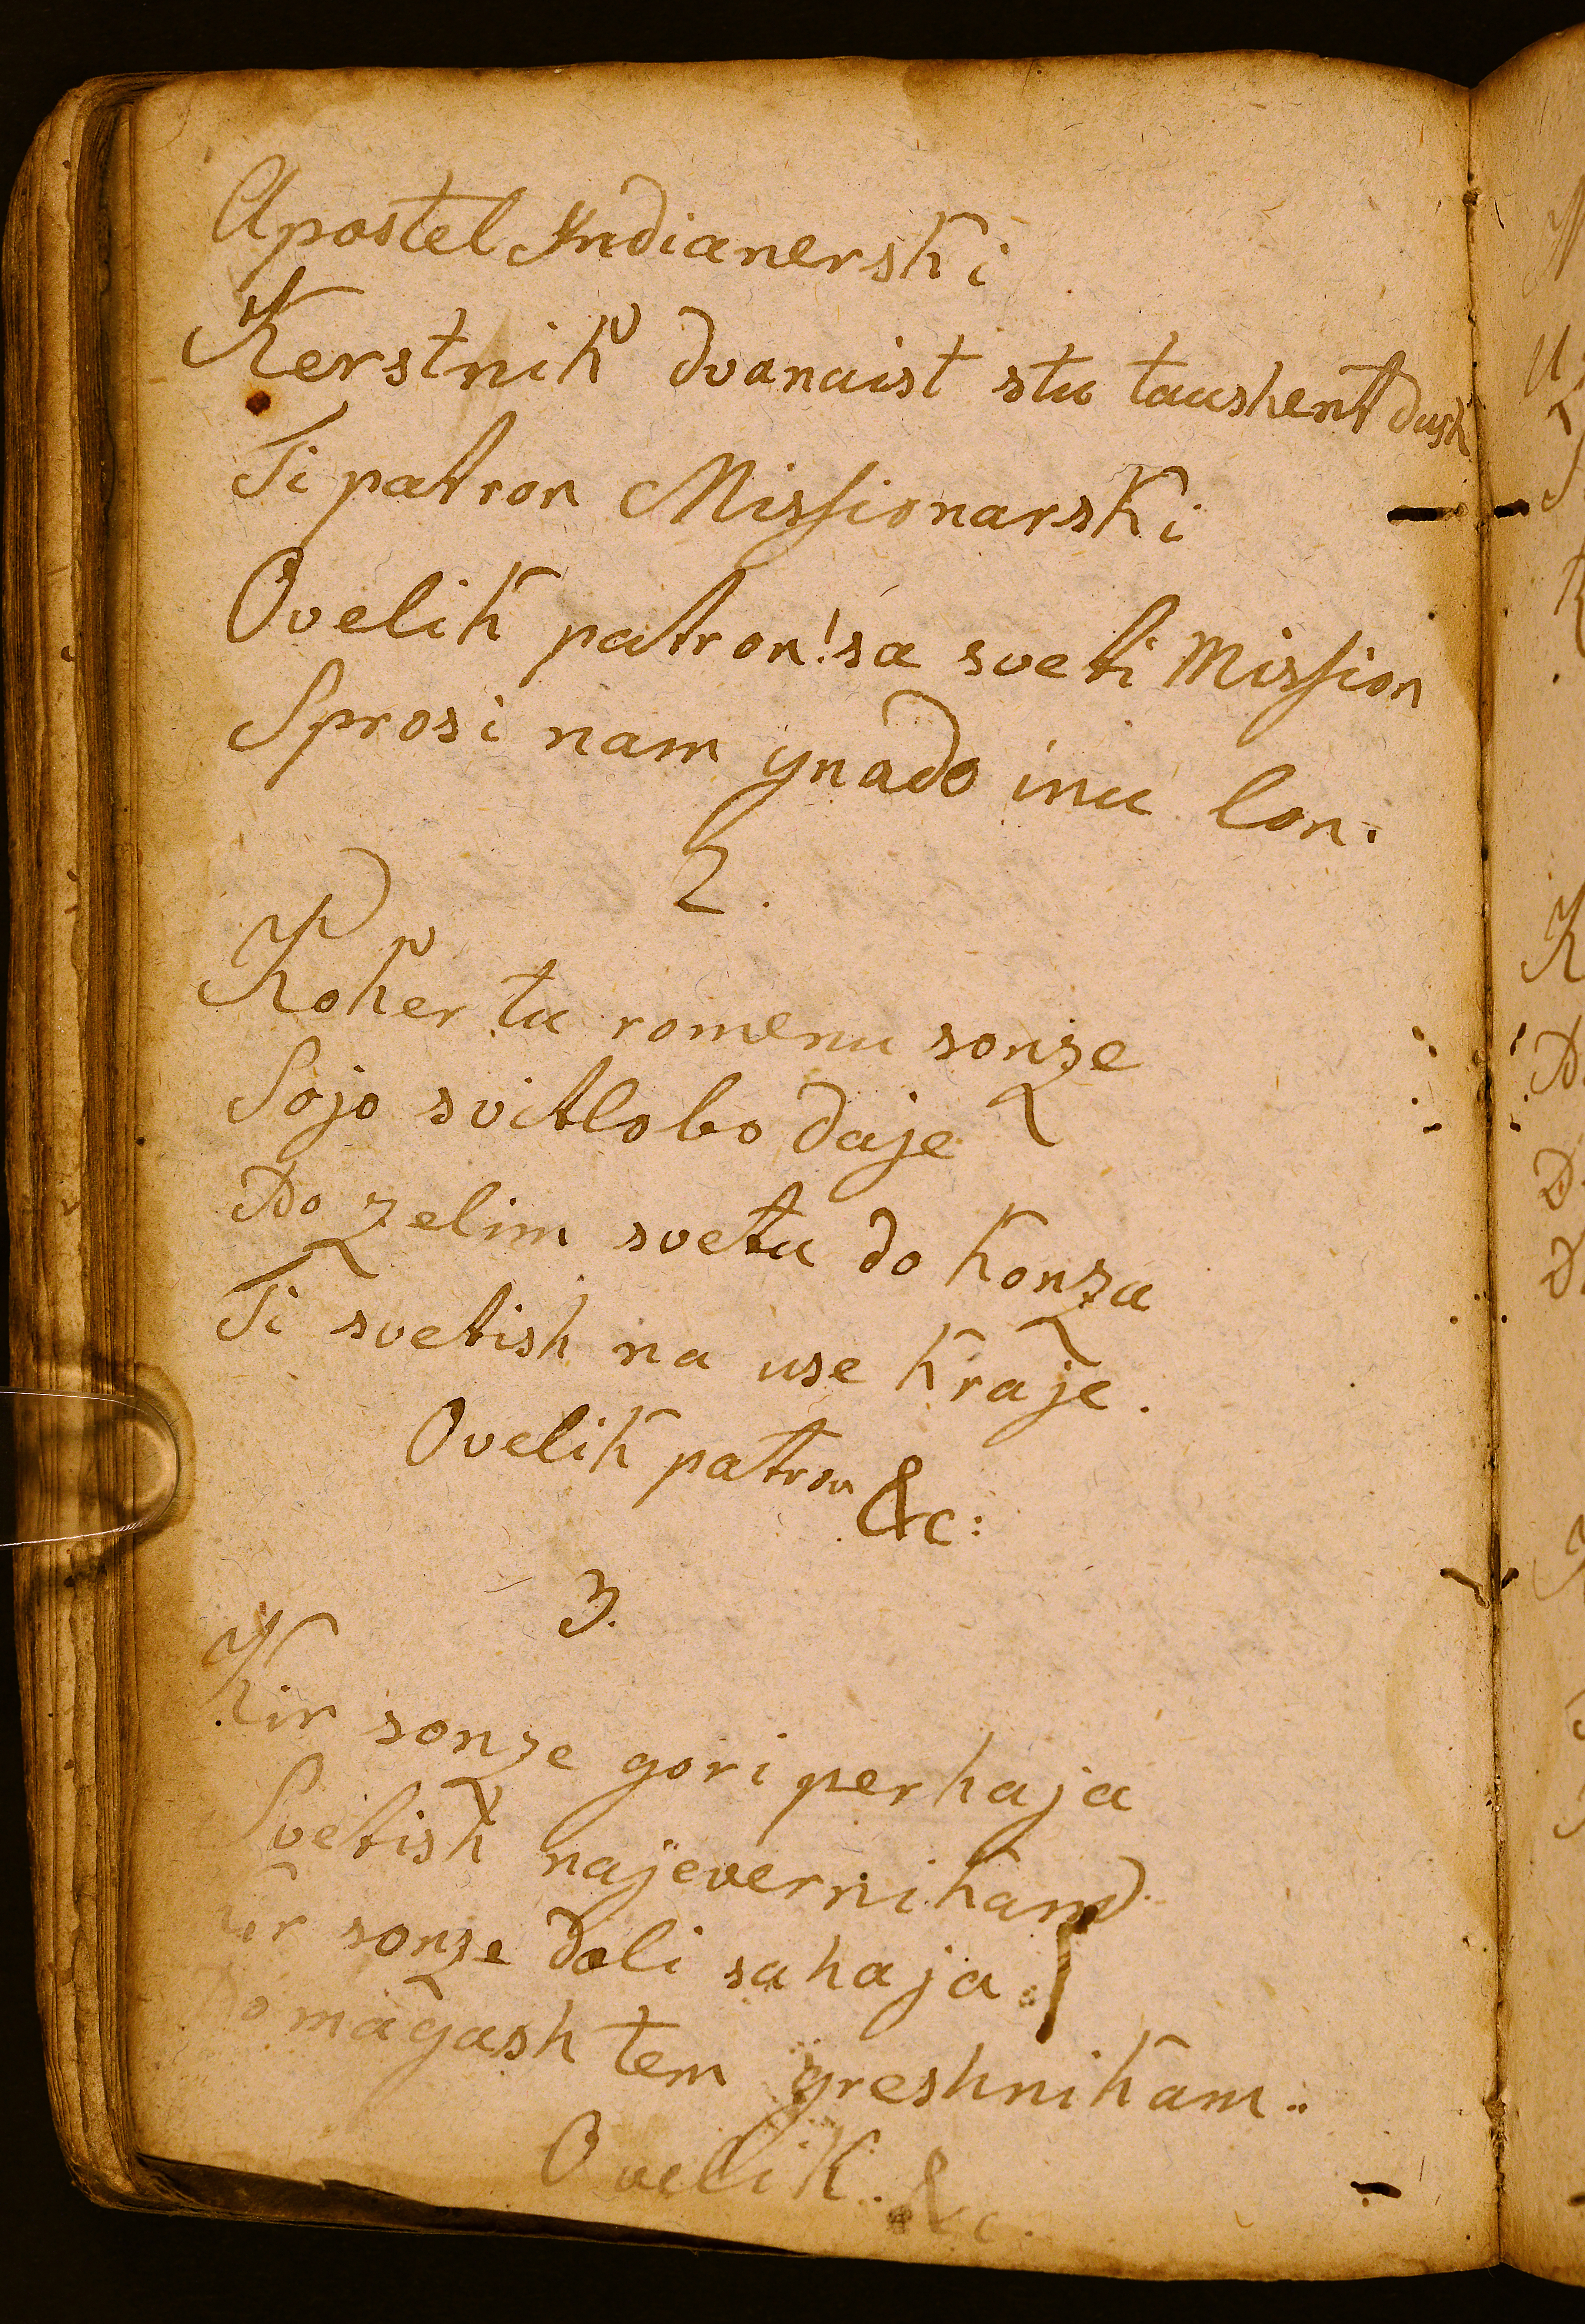 Apostel Yndianerski
Kerstnik dvanaist stu taushent dush
Ti patron Missionarski
O velik patron! sa sveti Mission
Sprosi nam gnado inu lon.
2.
Koker tu romenu sonze
Sojo svitlobo daje
Do zelim svetu do konza
Ti svetish na use kraje.
O velik patron &c:
3.
Kir sonze gori perhaja
Svetish najevernikam
Kir sonze doli sahaja
Domagash tem greshnikam.
O velik. &c.